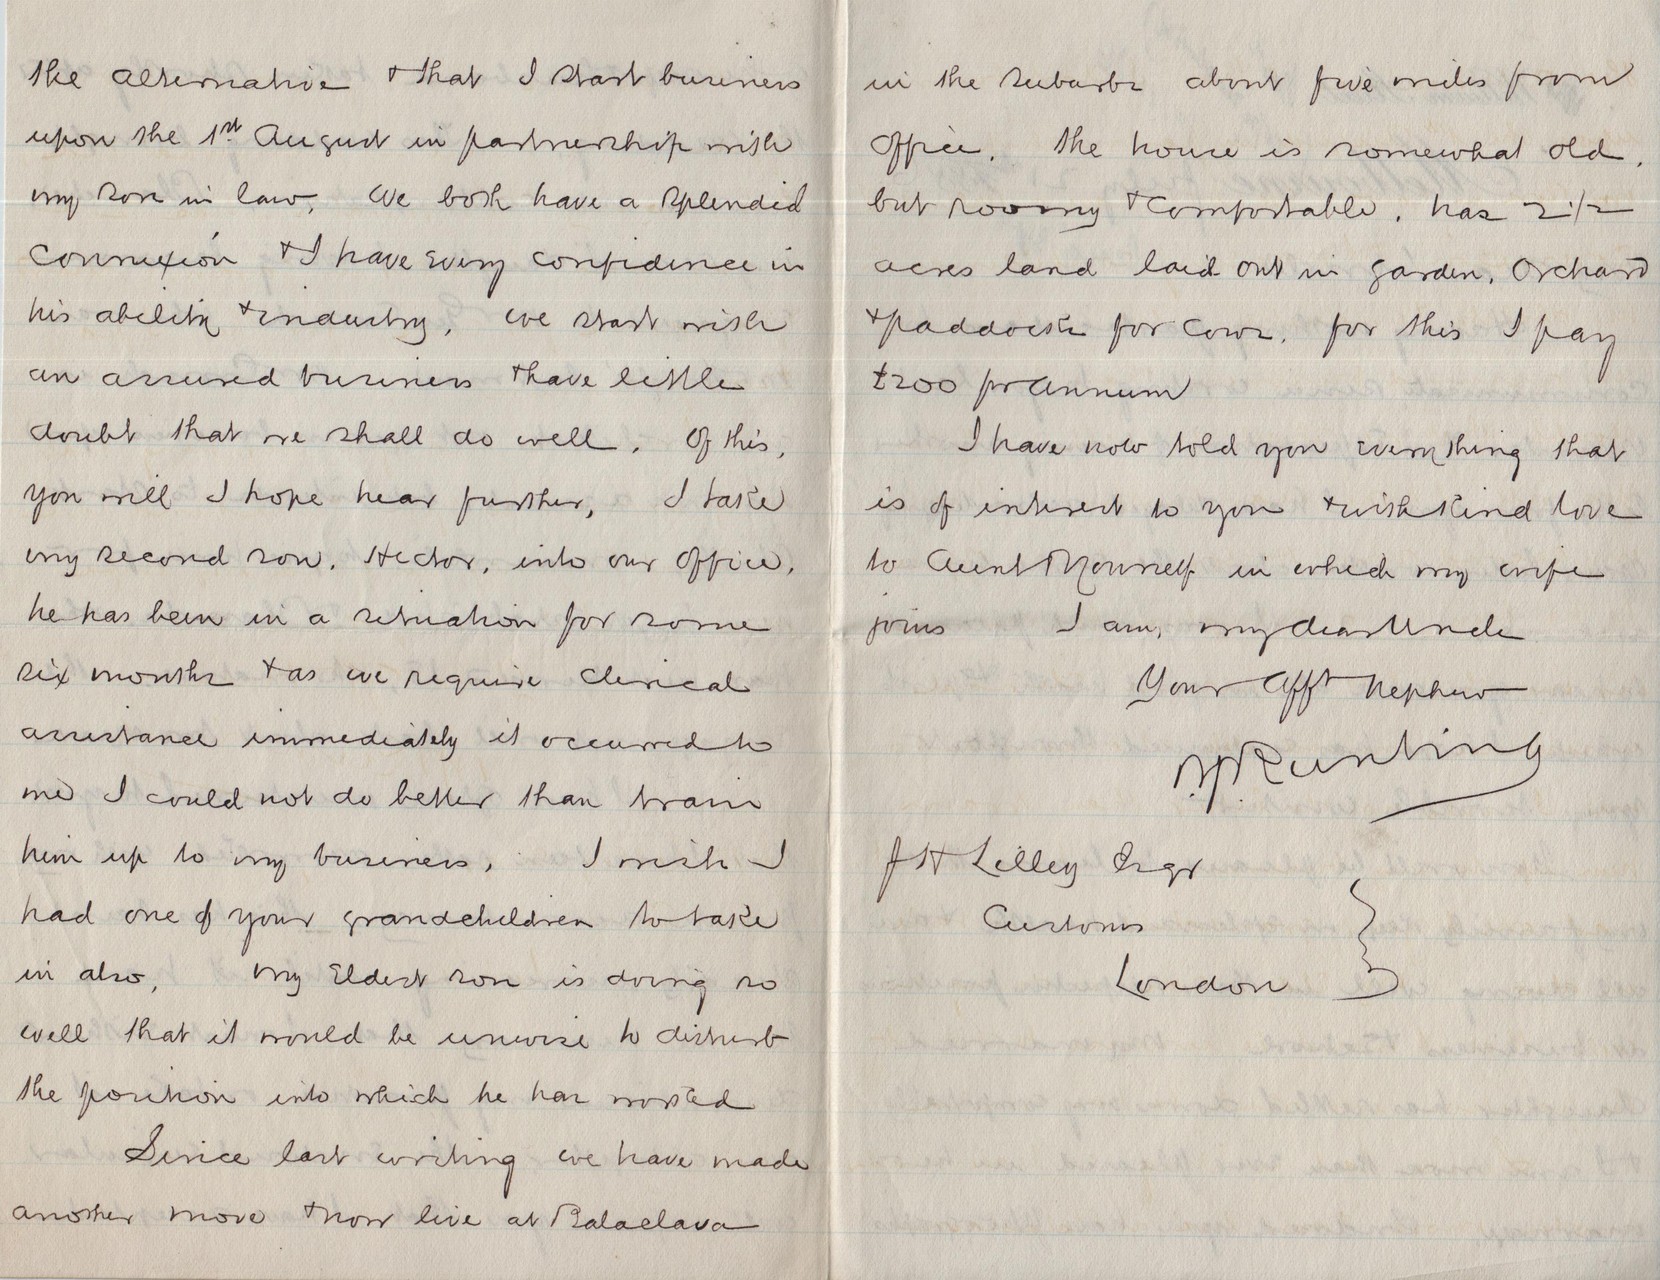 the alternative & that I start business
upon the 1st August in partnership with
my son in law. We both have a splendid
connexion & I have every confidence in
his ability & industry, we start with
an assured business & have little
doubt that we shall do well. Of this,
you will I hope hear further, I take
my second son, Hector, into our office,
he has been in a situation for some
six months & as we require clerical
assistance immediately it occurred to
me I could not do better than train
him up to my business, I wish I
had one of your grandchildren to take
in also, My Eldest son is doing so
well that it would be unwise to disturb
the position into which he has worked
Since last writing we have made
another move & now live at Balaclava
in the suburbs about five miles from
office. The house is somewhat old,
but roomy & comfortable, has 2 1/2
acres land laid out in garden, Orchard
& paddocks for cows. for this I pay
£200 pr annum
I have now told you everything that
is of interest to you & with kind love
to Aunt & Yourself in which my wife
joins I am, my dear Uncle
Your afft Nephew
Runting
J H Lilley Esqr
Customs
London